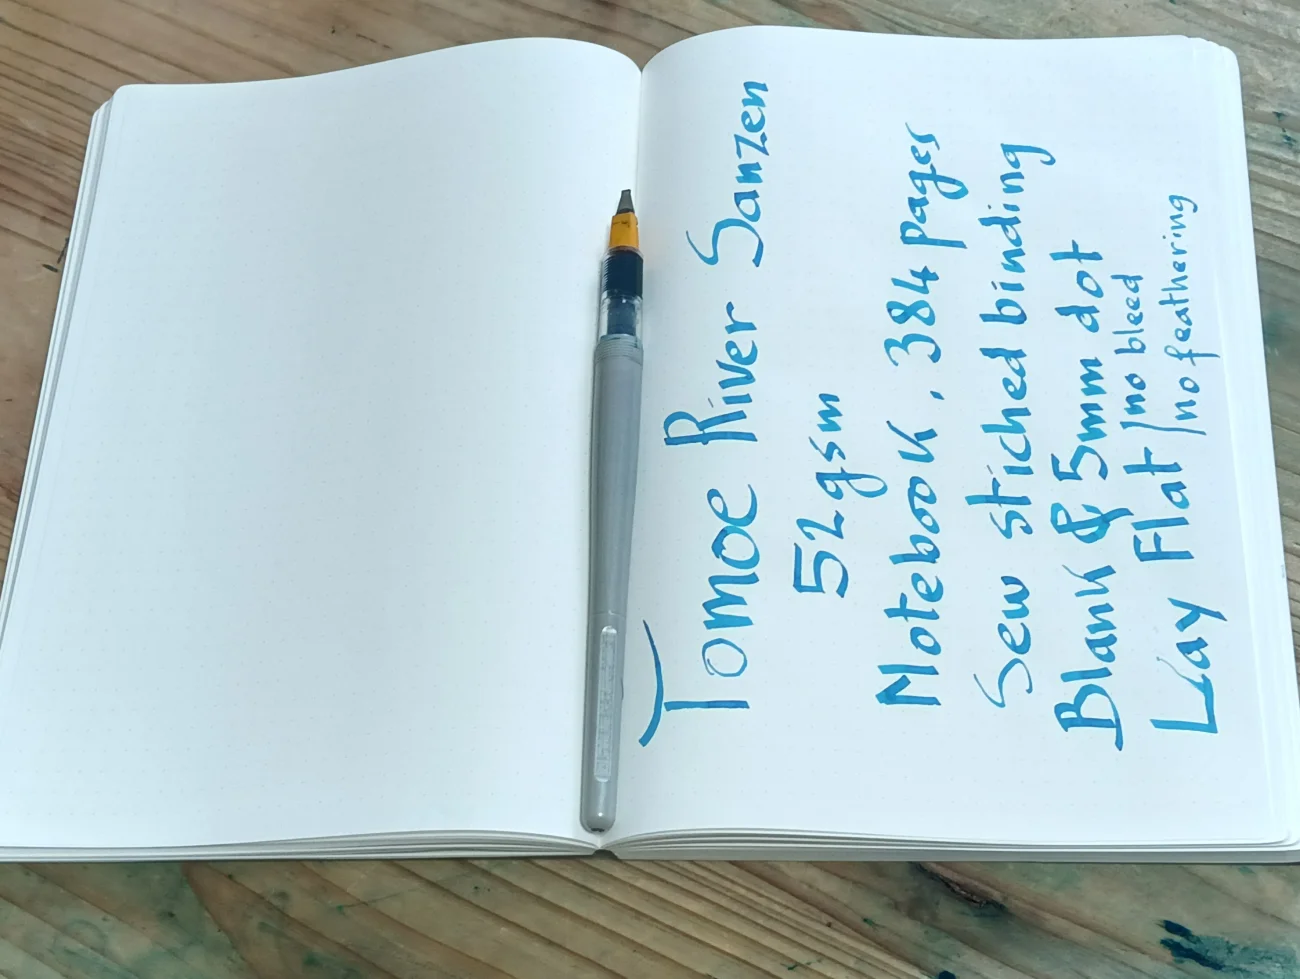 Tomoe River Sanzen
52 gsm
Notebook, 384 pages
Sew stiched binding
Blank & 5mm dot
Lay Flat
no bleed
no feathering